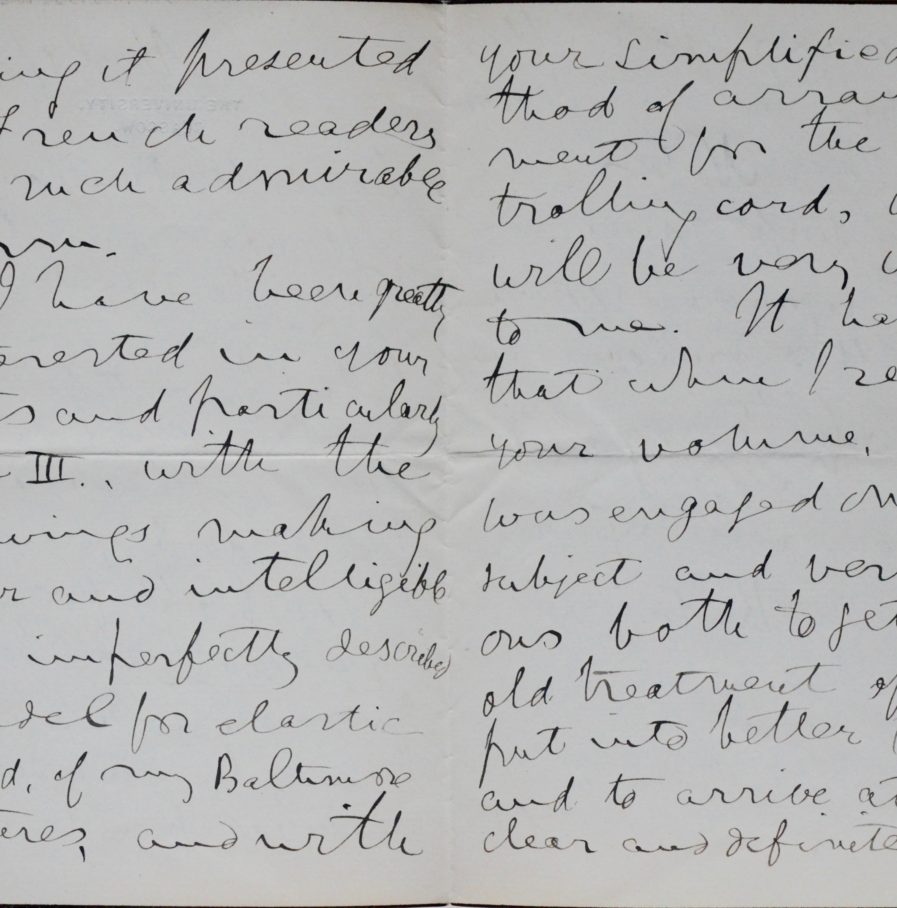 ing it presented
French readers
such admirable
rm.
I have been greatly
erested in your
ts and particularly
III., with the
wings making
r and intelligible
imperfectly described
del for elastic
d, of my Baltimore
tures, and with
your simplified
thod of arran
ment for the
trolling cord,
will be very
to me. It ha
that when I re
your volume,
was engaged on
subject and ver
ous both to get
old treatment of
put into better
and to arrive at
clear and definite
THE UNIVERSITY,